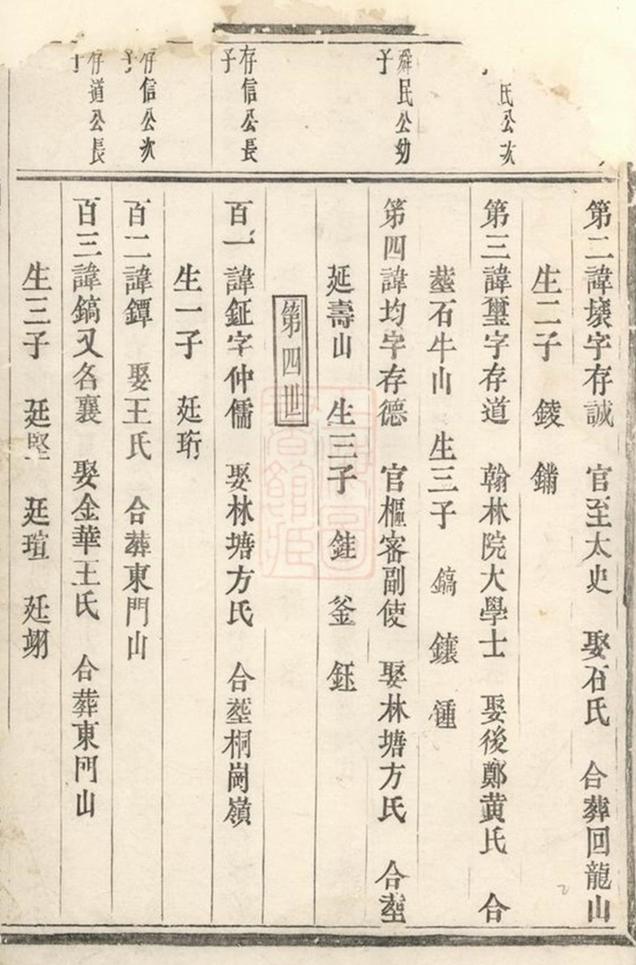 氏公次
第二諱壤字存誠 官至太史 娶石氏 合葬回龍山
生二子 錂 鏽
第三諱璽字存道 翰林院大學士 娶後鄭黃氏 合
塟石牛山 生三子 鎬 鑲 鍾
舜民公幼
子
第四諱均字存德 官樞密副使 娶林塘方氏 合塟
延壽山 生三子 銈 釜 鈺
第四世
存信公長
子
百一諱鉦字仲儒 娶林塘方氏 合塟桐崗嶺
生一子 廷珩
存信公次
子
百二諱鐔 娶王氏 合葬東門山
存道公長
子
百三諱鎬又名襄 娶金華王氏 合葬東門山
生三子 廷堅 廷瑄 廷翊